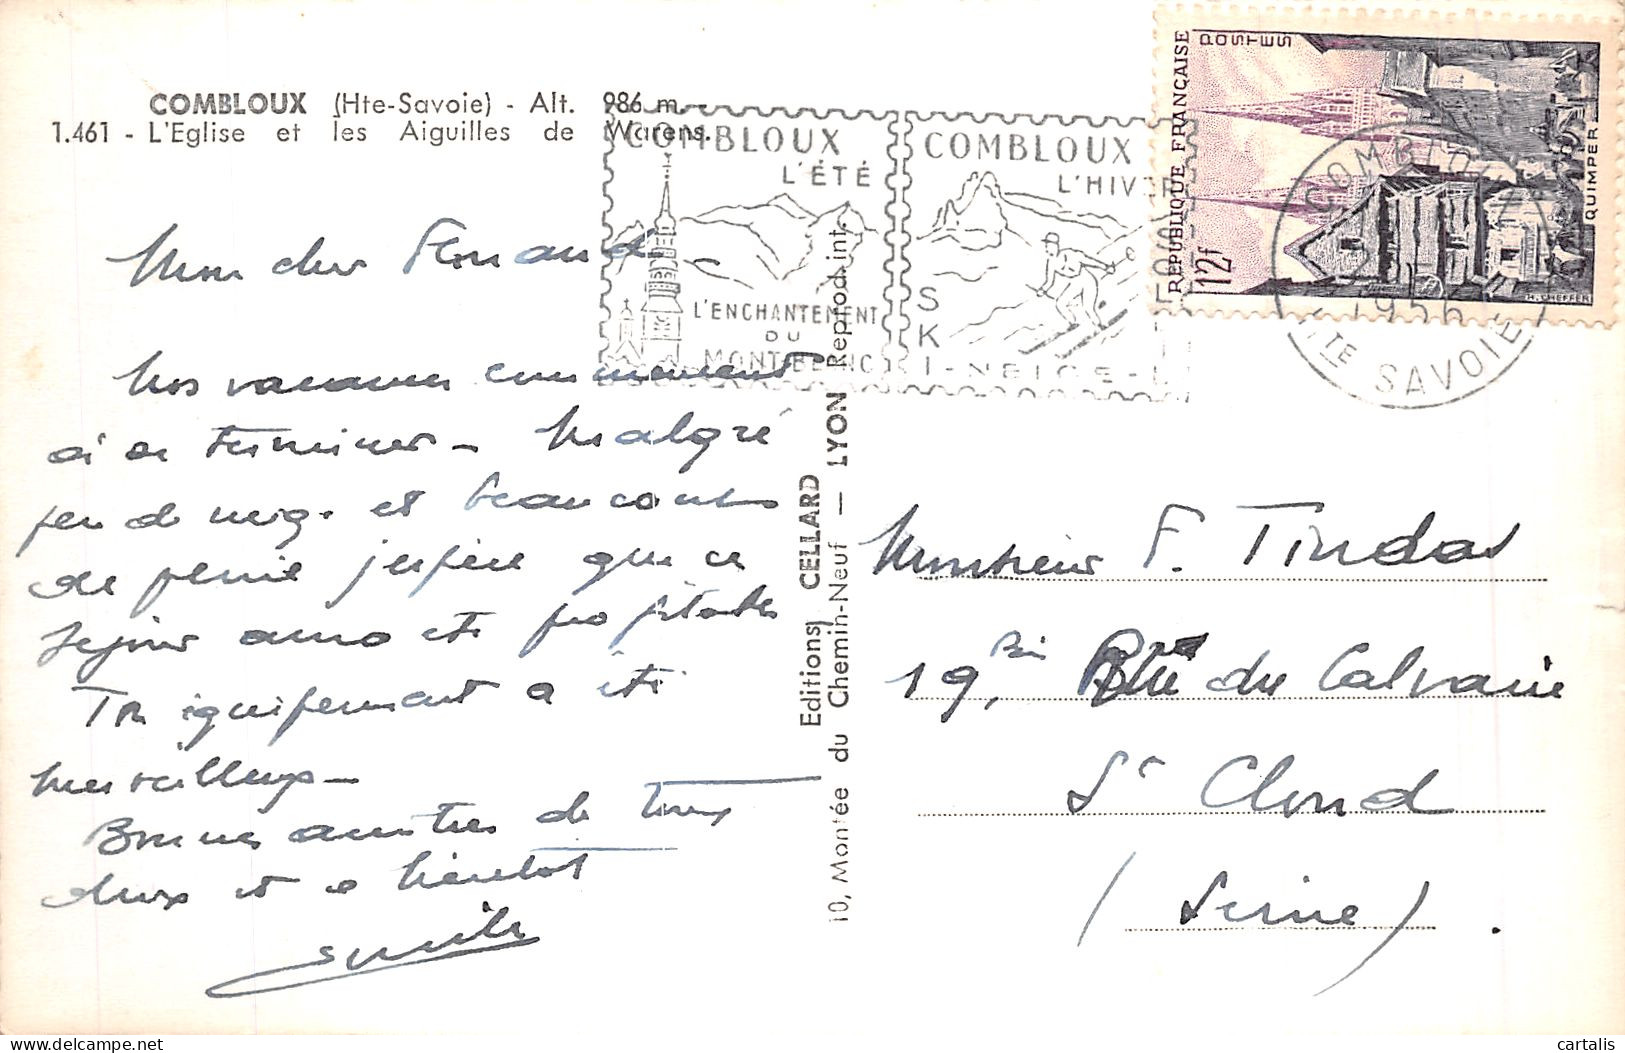 COMBLOUX (Hte-Savoie) - Alt. 986 m. -
1.461 - L'Eglise et les Aiguilles de Warens.
COMBLOUX
L'ÉTÉ
L'ENCHANTEMENT
DU
MONT-BLANC
COMBLOUX
L'HIVER
SKI-NEIGE-
RÉPUBLIQUE FRANÇAISE
POSTES
12f
QUIMPER
H. CHEFFER
COMBLOUX
HTE SAVOIE
Mon cher Fernand -
Nos vacances commencent
à se terminer - Malgré
peu de neige et beaucoup
de pluie j'espère que ce
séjour aura été profitable
Ton équipement a été
merveilleux -
Bonnes amitiés de tous
deux et à bientôt
Editions CELLARD
10, Montée du Chemin-Neuf — LYON Reprod. int.
Monsieur F. Tindas
19, bis Rue du Calvaire
St Cloud
(Seine).
cartalis